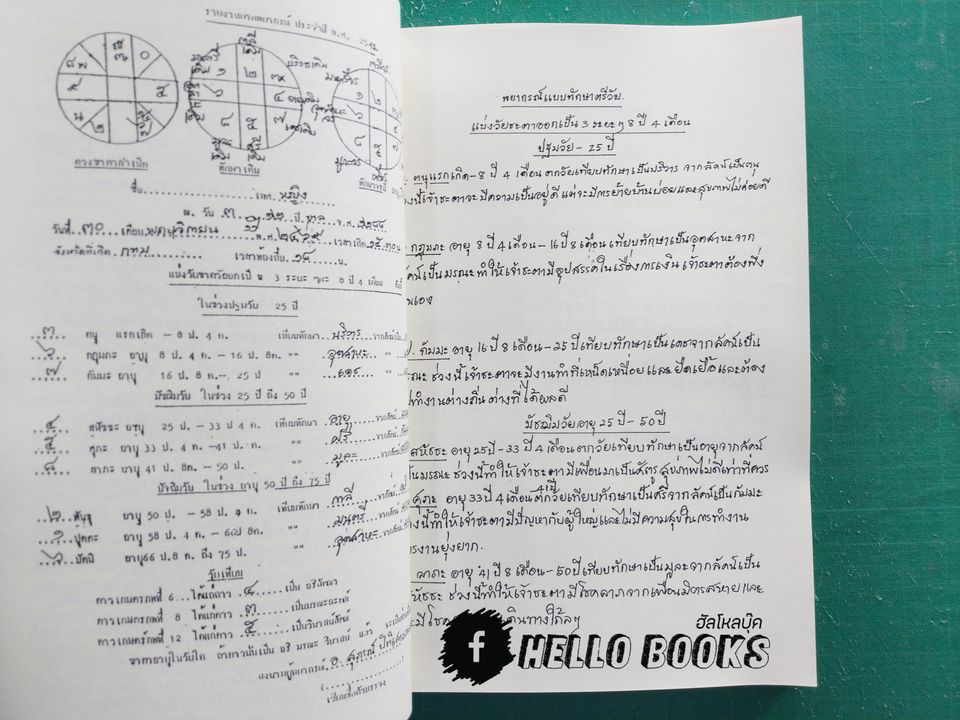 รายงานการพยากรณ์ ประจำปี พ.ศ. ๒๕๔๒
ดวงชาตากำเนิด
ทักษาเดิม
ทักษาจรปี
ชื่อ เพศ หญิง
วันที่ ๓๐ เดือน
จังหวัดที่เกิด กทม เวลาท้องถิ่น น.
ในช่วงปฐมวัย 25 ปี
๓ ตนุ แรกเกิด - 8 ป. 4 ด. เทียบทักษา บริวาร
๖ กฎุมภะ อายุ 8 ป. 4 ด. - 16 ป. 8ด. "" อุตสาหะ
๗ กัมมะ อายุ 16 ป. 8 ด.- 25 ป "" เดช
มัชฌิมวัย ในช่วง 25 ปี ถึง 50 ปี
สหัชชะ อายุ 25 ป. - 33 ป 4 ด. เทียบทักษา อายุ
ศุภะ อายุ 33 ป. 4 ด. -41 ป. "" ศรี
ลาภะ อายุ 41 ป. 8ด. - 50 ป. "" มูละ
ปัจฉิมวัย ในช่วง อายุ 50 ปี ถึง 75 ปี
อายุ 50 ป. - 58 ป. เทียบทักษา กาลี
อายุ 58 ป. 4 ด. "" มนตรี
อายุ66 ป.8 ด. ถึง 75 ป. "" อุตสาหะ
วันเทียบ
ดาวเกษตรภพที่ 6 ได้แก่ดาว ๔ เป็น
ดาวเกษตรภพที่ 8 ได้แก่ดาว ๓ เป็นมรณะลัคน์
ดาวเกษตรภพที่ 12 ได้แก่ดาว ๕ เป็นวินาสน์ลัคน์
ลงนามผู้พยากรณ์
พยากรณ์แบบทักษาตรีวัย.
แบ่งวัยชะตาออกเป็น 3 ระยะๆ 8 ปี 4 เดือน
ปฐมวัย - 25 ปี
ตนุแรกเกิด-8 ปี 4 เดือน ตกวัยเทียบทักษาเป็นบริวาร จากลัคน์เป็นตนุ
งนี้เจ้าชะตาจะมีความเป็นอยู่ดี แต่จะมีการย้ายบ้านบ่อยและสุขภาพไม่ค่อยดี
กฎุมภะ อายุ 8 ปี 4 เดือน - 16 ปี 8 เดือน เทียบทักษาเป็นอุตสาหะจาก
คน์เป็นมรณะทำให้เจ้าชะตามีอุปสรรคในเรื่องการเงิน เจ้าชะตาต้องพึ่ง
นเอง
กัมมะ อายุ 16 ปี 8 เดือน - 25 ปี เทียบทักษาเป็นเดชจากลัคน์เป็น
ณะ ช่วงนี้เจ้าชะตาจะมีงานทำที่เหน็ดเหนื่อย และยืดเยื้อ และต้อง
ทำงานต่างถิ่น ต่างที่ได้ผลดี
มัชฌิมวัยอายุ 25 ปี - 50 ปี
สหัชชะ อายุ 25 ปี - 33 ปี 4 เดือนตกวัยเทียบทักษาเป็นอายุจากลัคน์
ป็นมรณะ ช่วงนี้ทำให้เจ้าชะตามีเพื่อนมาเป็นศัตรู สุขภาพไม่ดีเท่าที่ควร
ศุภะ อายุ 33 ปี 4 เดือน -41ปี ตกวัยเทียบทักษาเป็นศรีจากลัคน์เป็นกัมมะ
งนี้ทำให้เจ้าชะตามีปัญหากับผู้ใหญ่และไม่มีความสุขในการทำงาน
ารงานยุ่งยาก.
ลาภะ อายุ 41 ปี 8 เดือน - 50 ปี เทียบทักษาเป็นมูละจากลัคน์เป็น
หัชชะ ช่วงนี้ทำให้เจ้าชะตามีโชคลาภจากเพื่อนมิตรสหาย และ
ะมีโชค เดินทางใกล้ๆ
ฮัลโหลบุ๊ค
f HELLO BOOKS